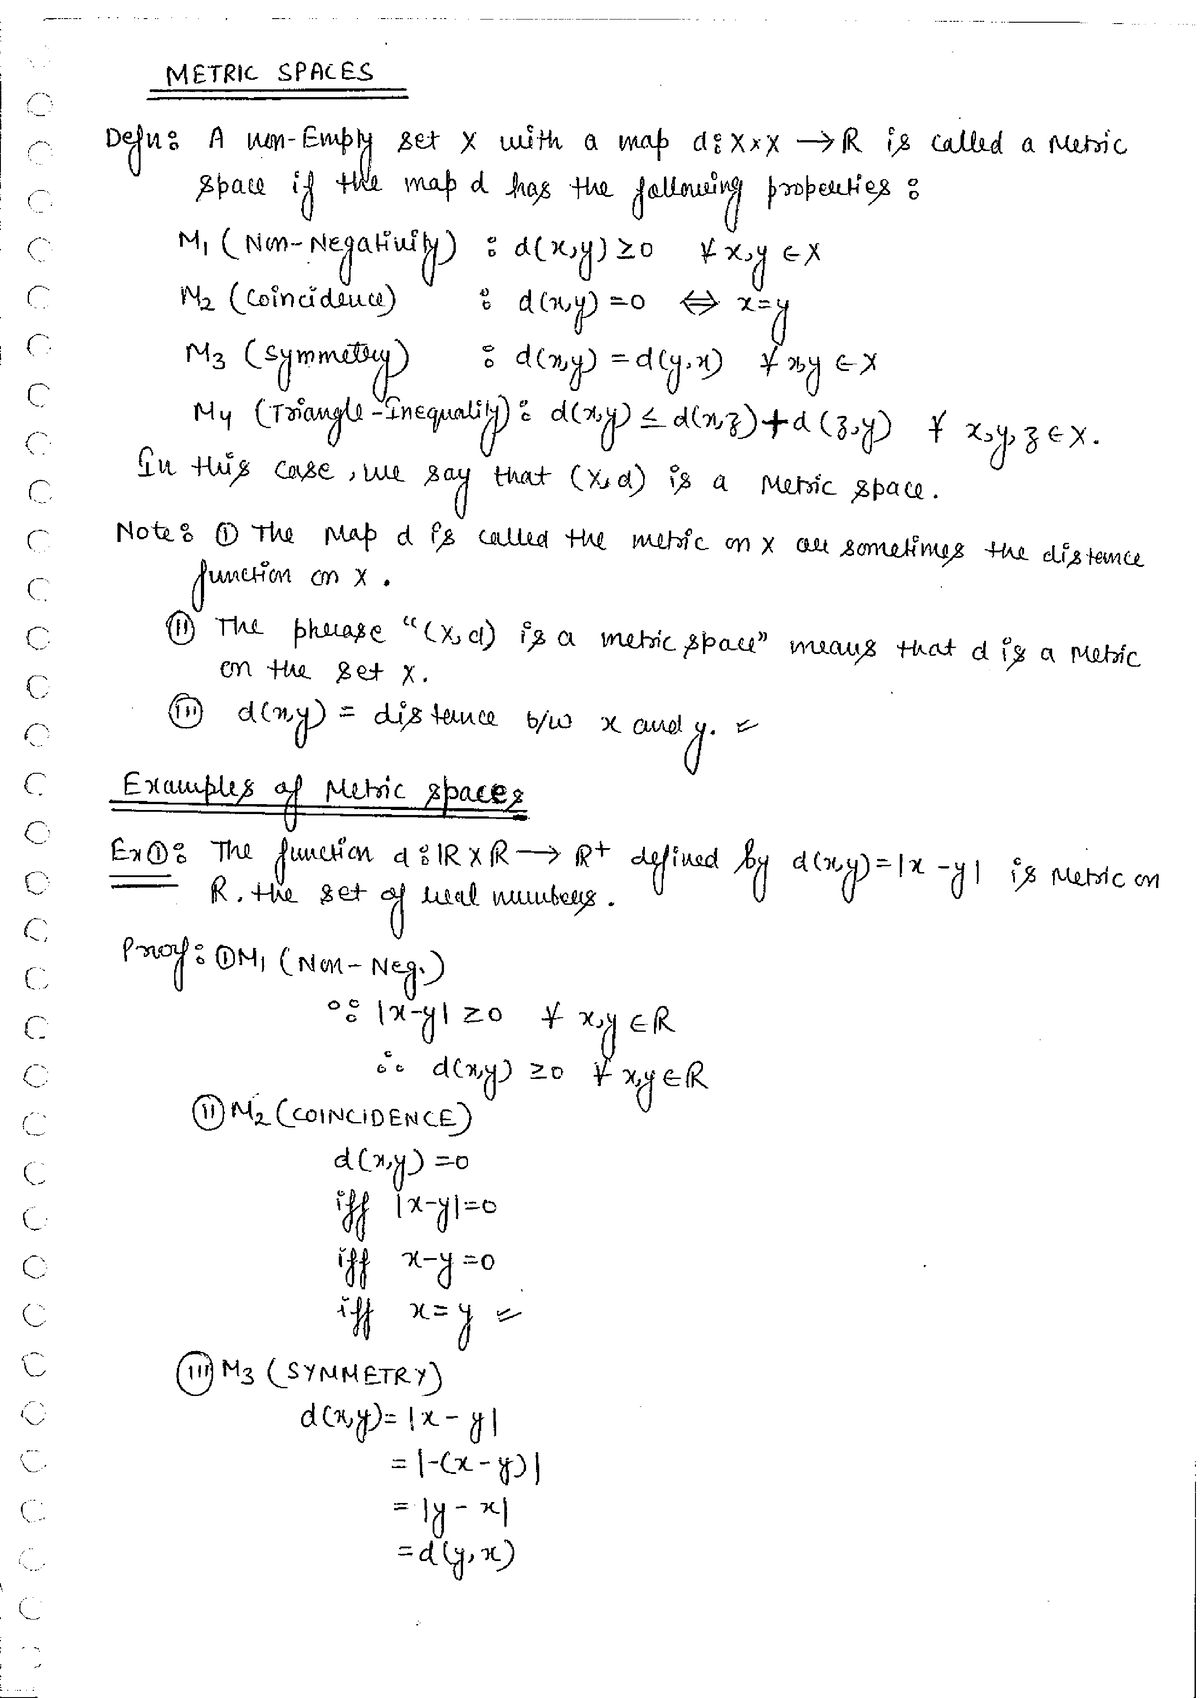 METRIC SPACES
Defn: A non-Empty set X with a map d: X×X → R is called a Metric
space if the map d has the following properties :
M1 (Non-Negativity) : d(x,y) ≥ 0 ∀ x,y ∈ X
M2 (Coincidence) : d(x,y) = 0 ⇔ x = y
M3 (Symmetry) : d(x,y) = d(y,x) ∀ x,y ∈ X
M4 (Triangle-Inequality) : d(x,y) ≤ d(x,z) + d(z,y) ∀ x,y,z ∈ X.
In this case, we say that (X,d) is a Metric space.
Note : (i) The Map d is called the metric on X or sometimes the distance
function on X.
(ii) The phrase "(X,d) is a metric space" means that d is a Metric
on the set X.
(iii) d(x,y) = distance b/w x and y.
Examples of Metric spaces
Ex(1): The function d : R × R → R+ defined by d(x,y) = |x - y| is Metric on
R, the set of real numbers.
Proof : (i) M1 (Non-Neg.)
∵ |x-y| ≥ 0 ∀ x,y ∈ R
∴ d(x,y) ≥ 0 ∀ x,y ∈ R
(ii) M2 (COINCIDENCE)
d(x,y) = 0
iff |x-y| = 0
iff x-y = 0
iff x = y
(iii) M3 (SYMMETRY)
d(x,y) = |x - y|
= |-(x - y)|
= |y - x|
= d(y,x)